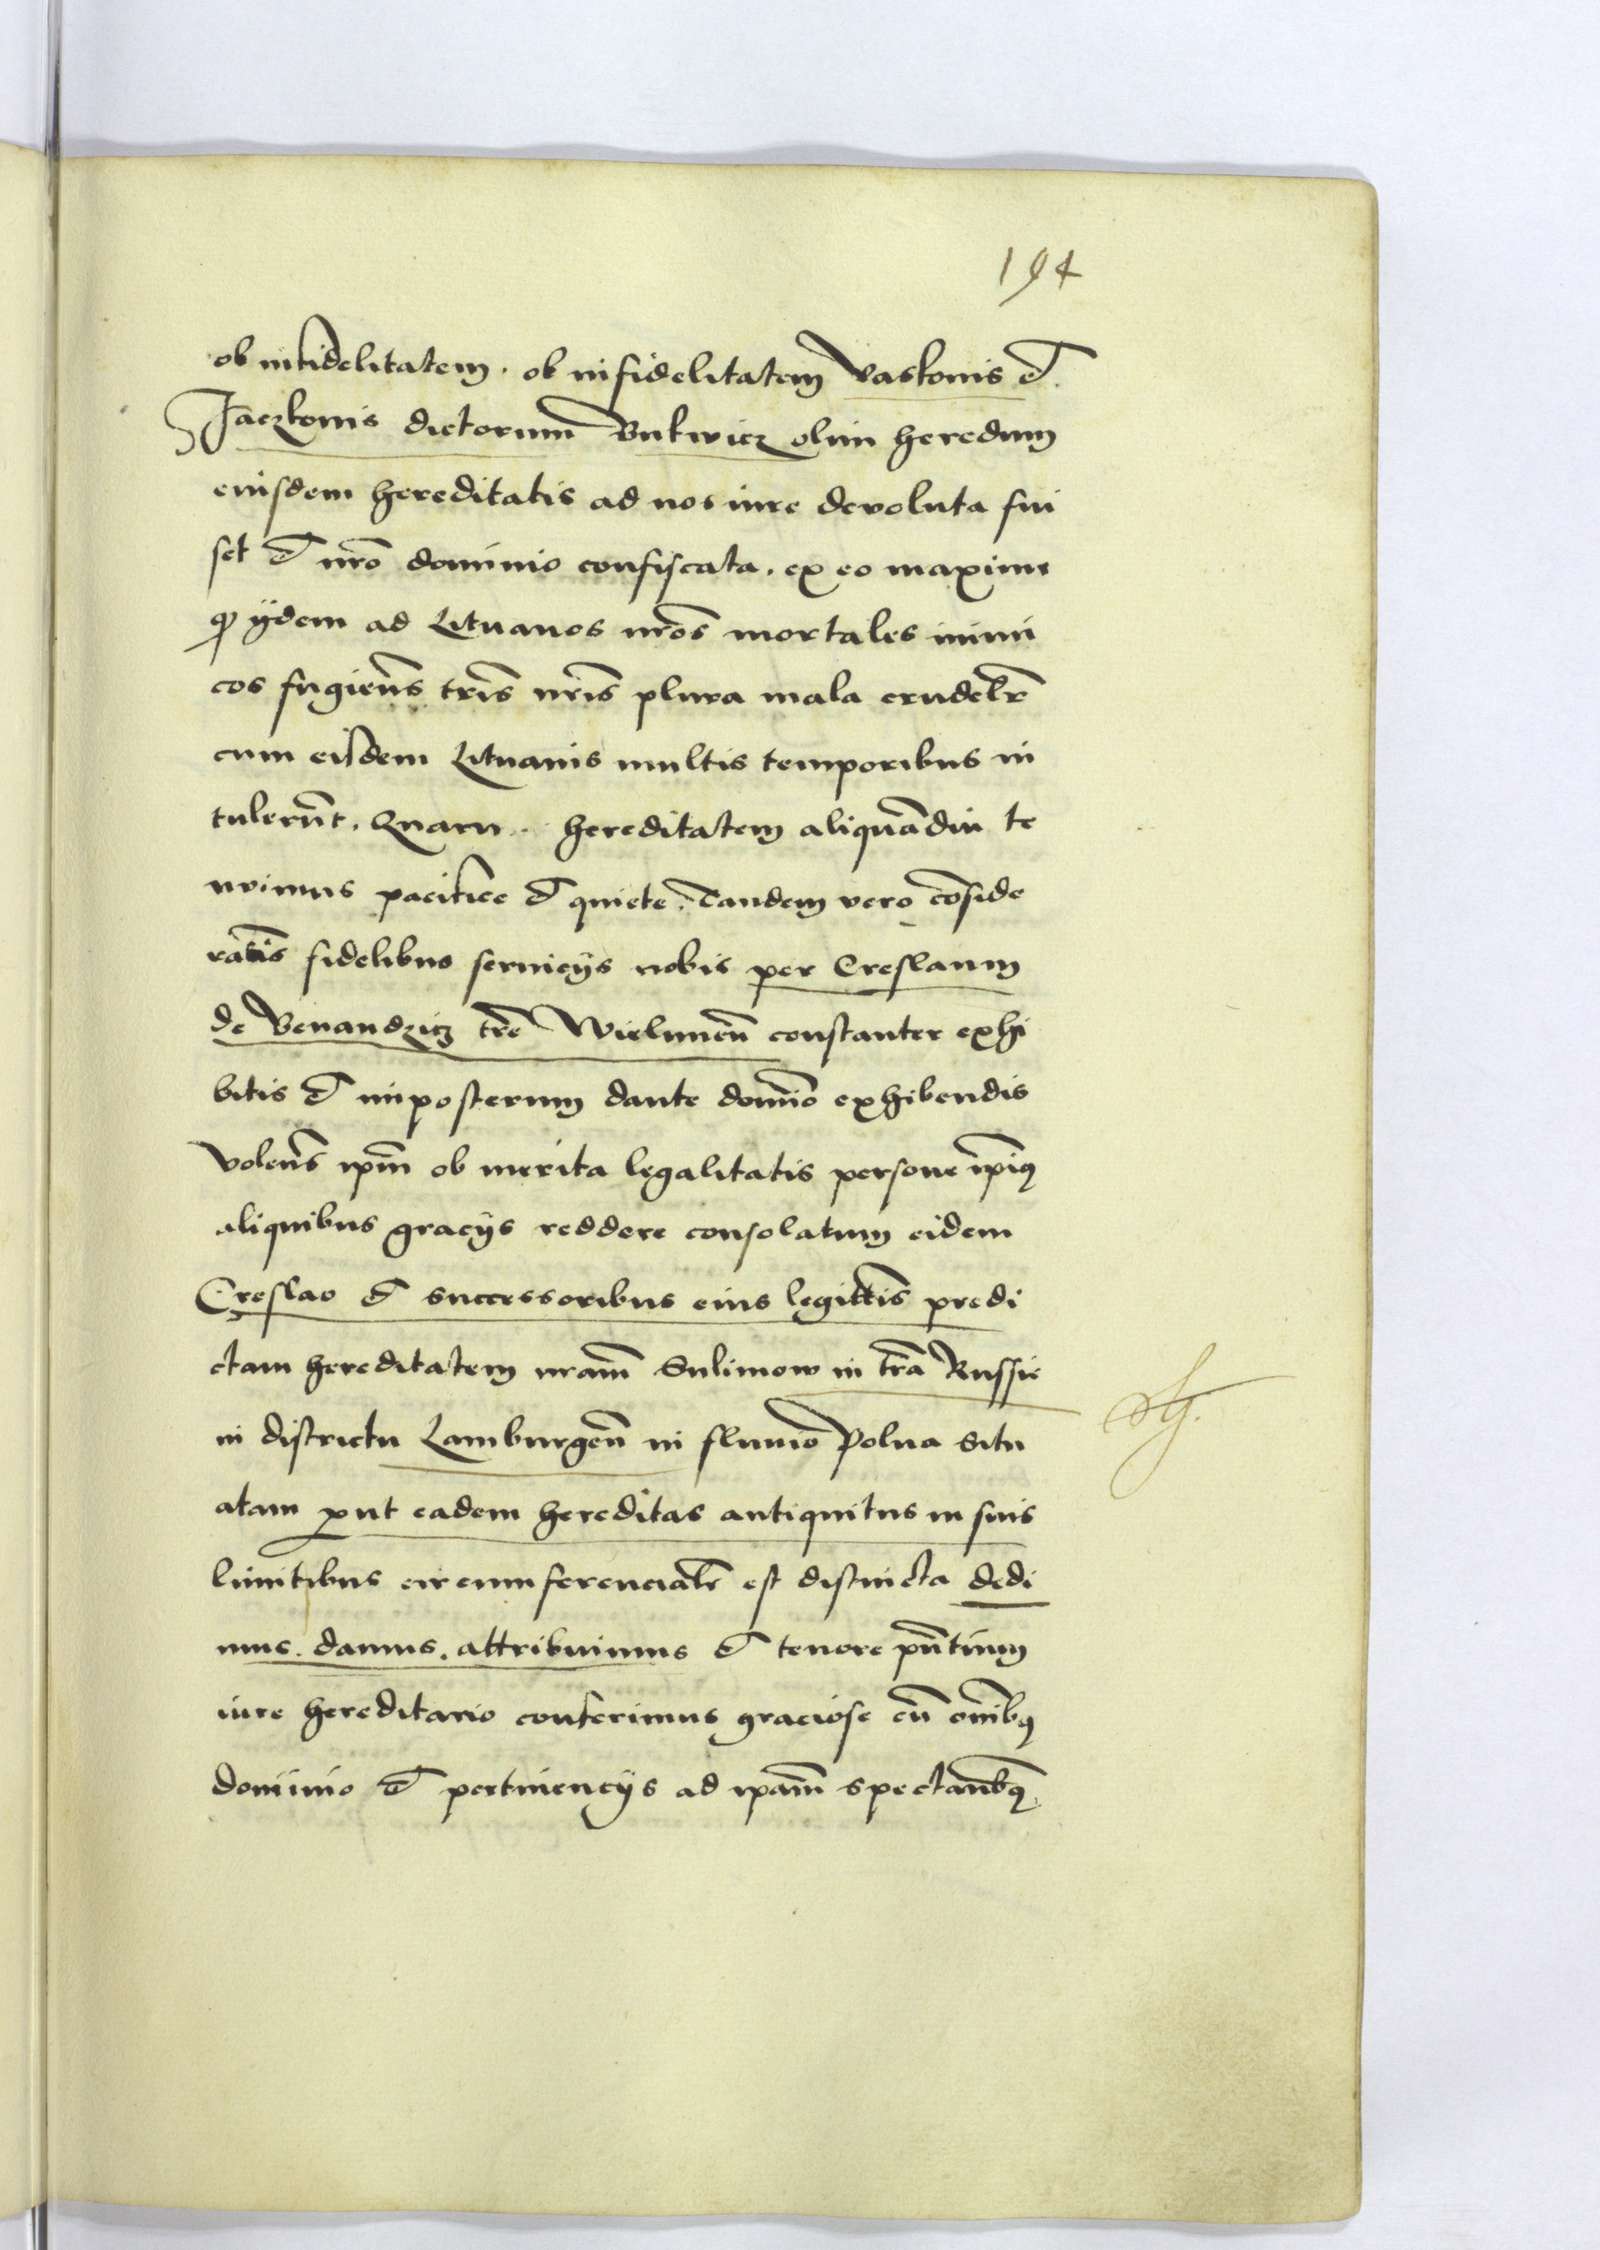 194
ob infidelitatem . ob infidelitatem Vaskonis et
Jaczkonis dictorum Bukwicz olim heredum
eiusdem hereditatis ad nos iure devoluta fui
set et nr̄o dominio confiscata . ex eo maxime
ꝙ ÿdem ad Lituanos nr̄os mortales inimi
cos fugien̄s tr̄is nr̄is plura mala crudelr̄
cum eisdem Lituanis multis temporibus in
tulerūt . Quam hereditatem aliquādiu te
nuimus pacifice et quiete . Tandem vero cōside
ratis fidelibus seruicÿs nobis per Creslaum
de Benandzicz tr̄e Wielunen̄ constanter exhi
bitis et imposterum dante domīo exhibendis
Volen̄s ip̄m ob merita legalitatis persone ip̄iꝰ
aliquibus gracÿs reddere consolatum eidem
Creslao et successoribus eius legittīs predi
ctam hereditatem nr̄am Sulimow in tr̄a Russie
in districtu Lamburgen̄ in fluuio Polua situ
atam ꝓut eadem hereditas antiquitus in suis
limitibus circumferencialr̄ est distincta dedi
mus . damus . attribuimus et tenore pn̄tium
iure hereditario conferimus graciose cū om̄ibꝫ
dominio et pertinencÿs ad ip̄am spectan̄bꝫ